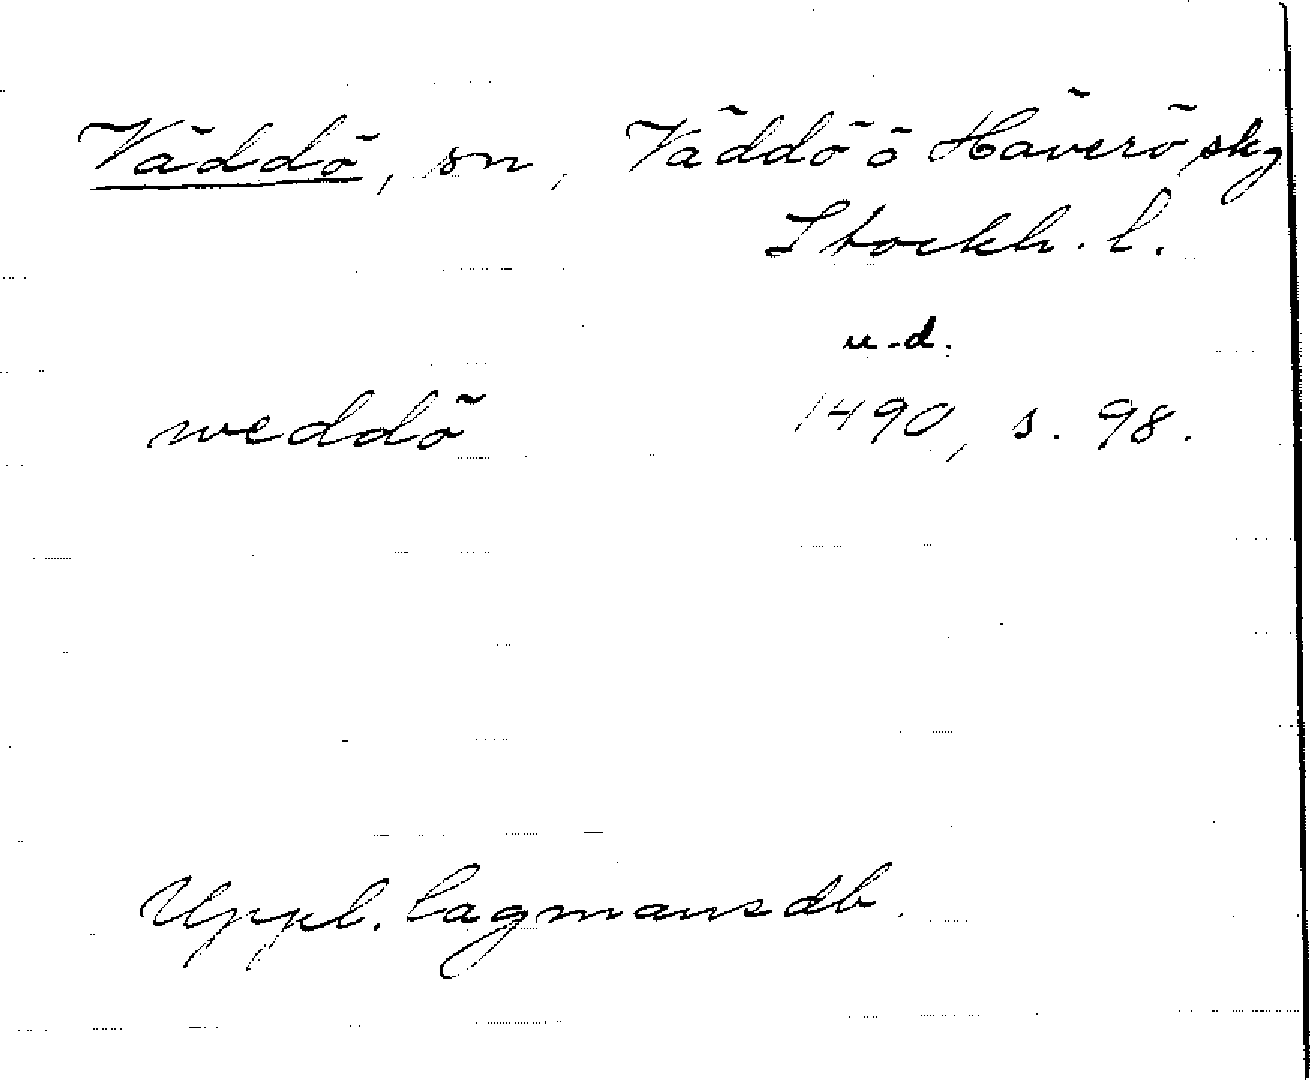 Väddö, sn, Väddö o Häverö skg
Stockh. l.
u.d.
weddö 1490, s. 98.
Uppl. lagmansdb.